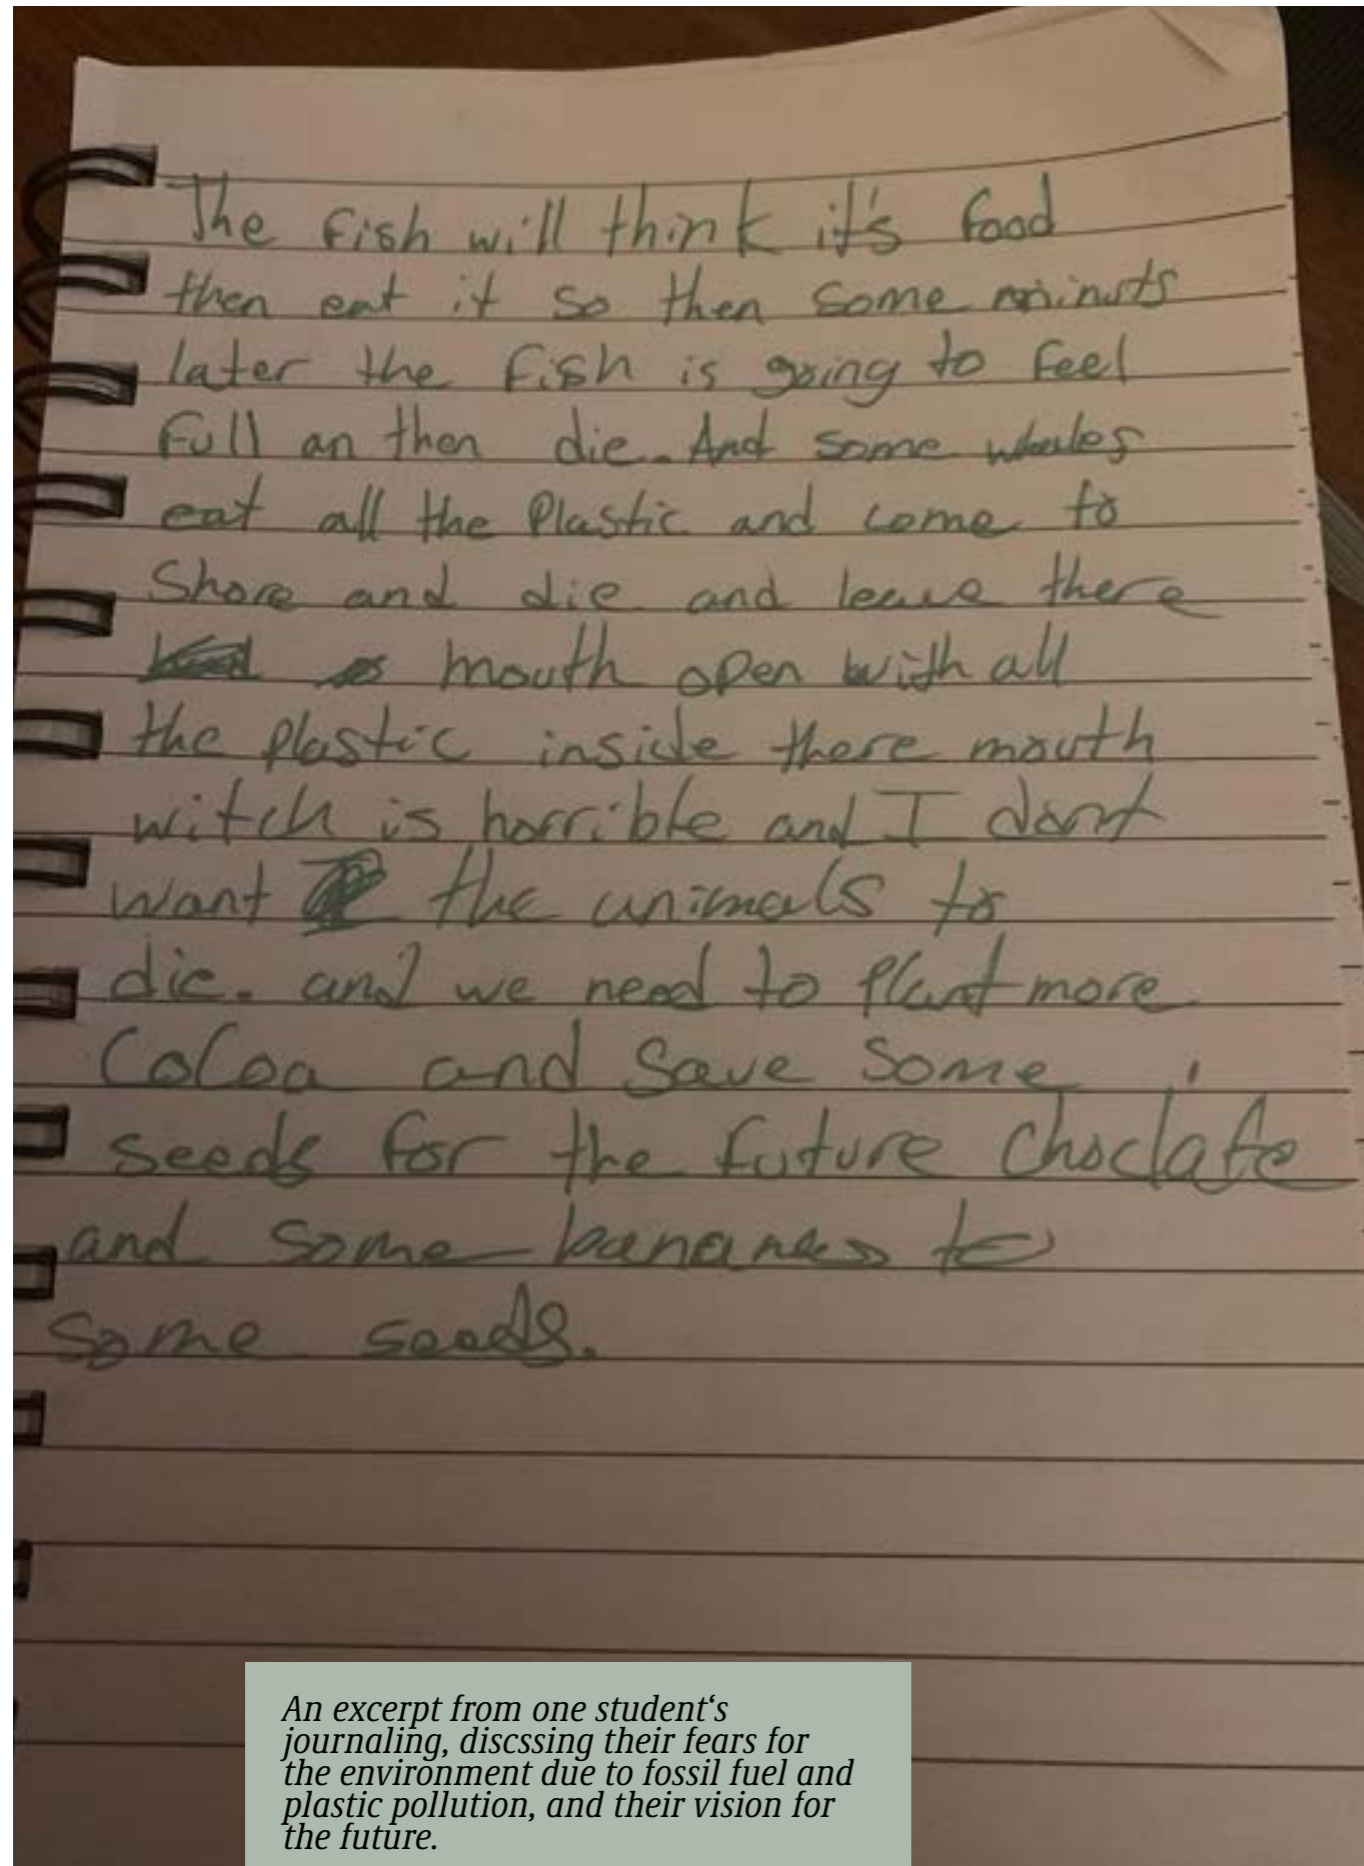 The fish will think it's food
then eat it so then some minuts
later the fish is going to feel
full an then die. And some whales
eat all the Plastic and come to
Shore and die and leave there
mouth open with all
the plastic inside there mouth
witch is horrible and I dont
want the animals to
die. and we need to plant more
CoCoa and Save Some
seeds for the future choclate
and some bananas to
some seeds.
An excerpt from one student‘s
journaling, discssing their fears for
the environment due to fossil fuel and
plastic pollution, and their vision for
the future.